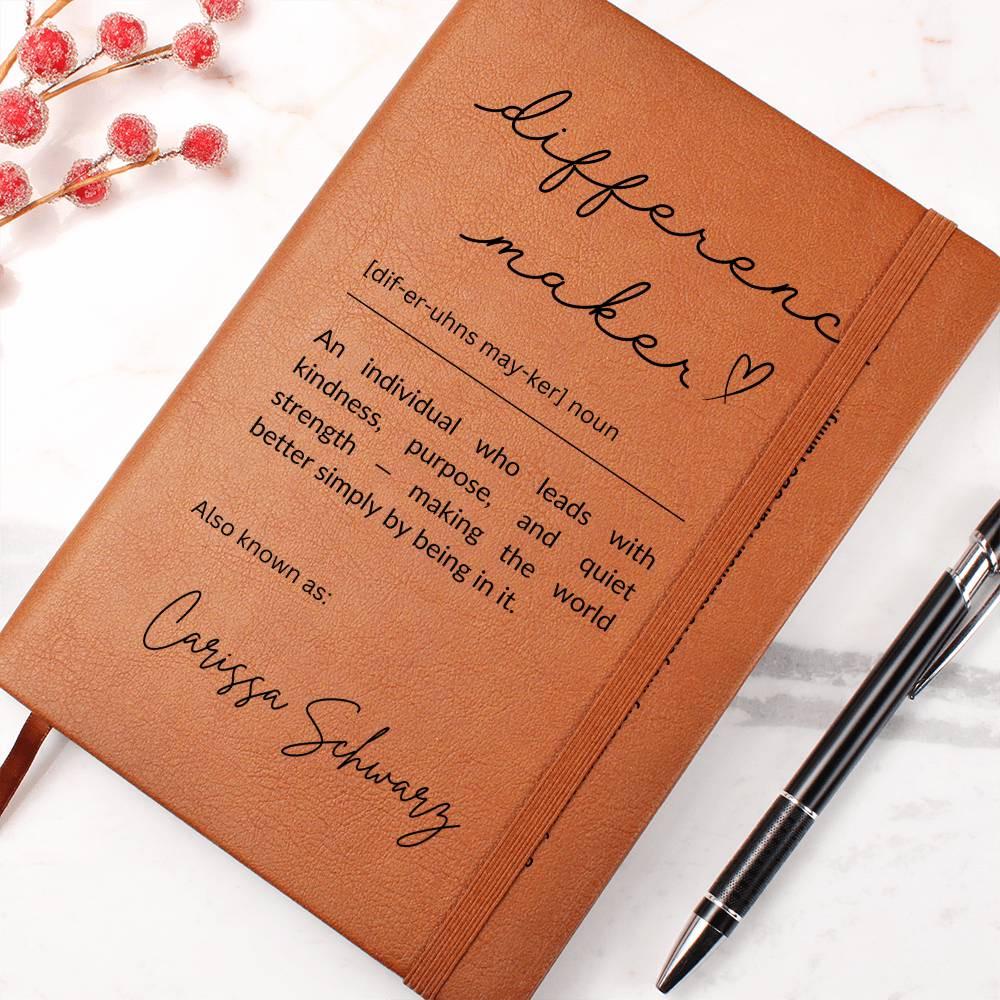 differenc
maker
[dif-er-uhns may-ker] noun
An individual who leads with
kindness, purpose, and quiet
strength – making the world
better simply by being in it.
Also known as:
Carissa Schwarz